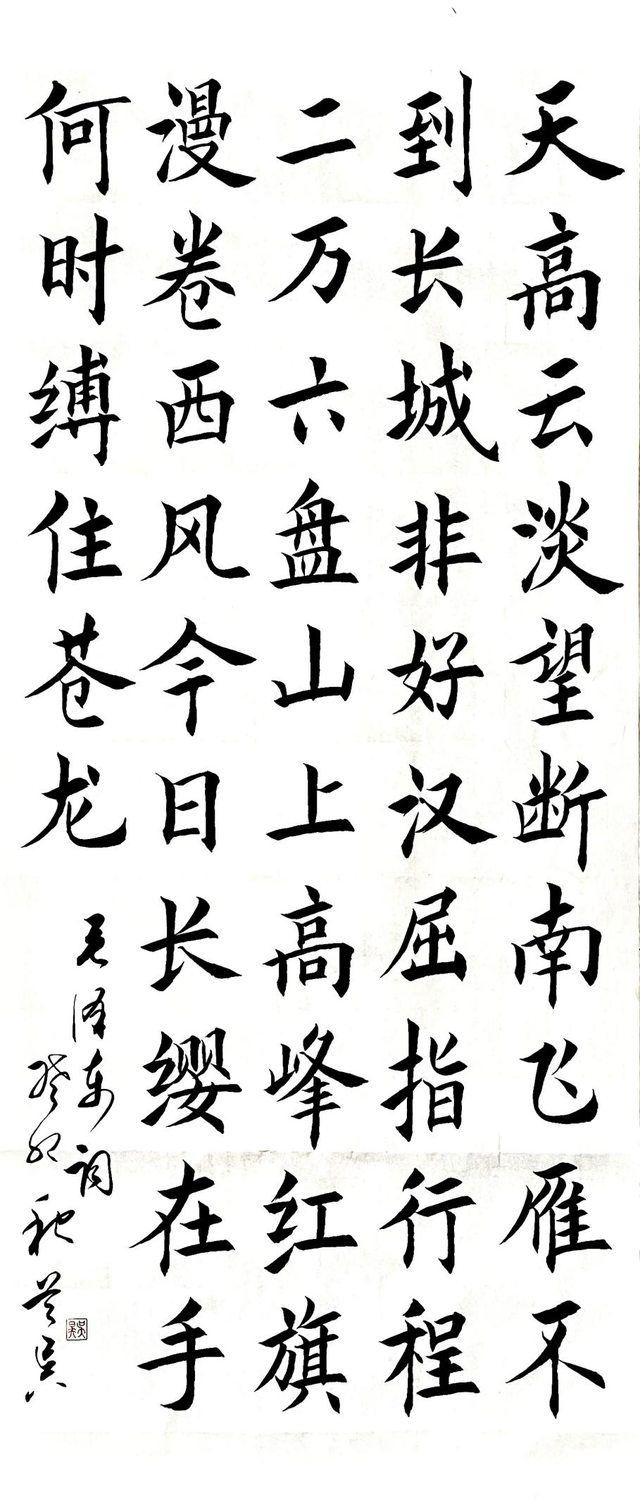 天高云淡望断南飞雁不
到长城非好汉屈指行程
二万六盘山上高峰红旗
漫卷西风今日长缨在手
何时缚住苍龙
毛泽东词
癸巳秋